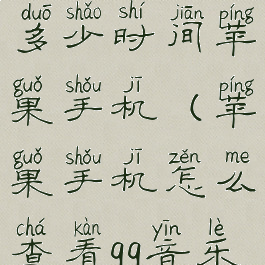 duō shǎo shí jiān píng
多少时间苹
guǒ shǒu jī píng
果手机(苹
guǒ shǒu jī zěn me
果手机怎么
chá kàn yīn lè
查看99音乐